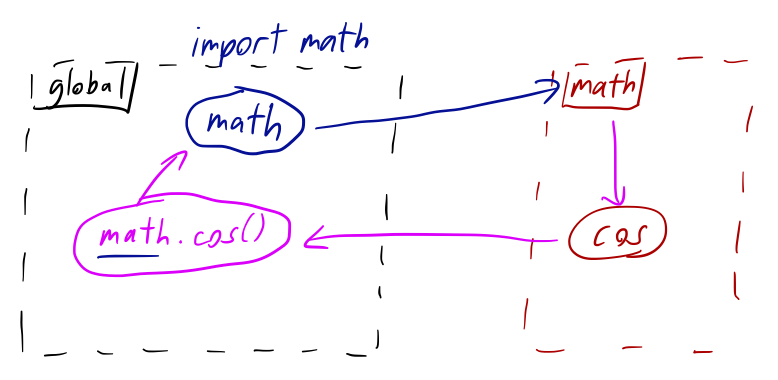 import math
global
math
math
math.cos()
cos